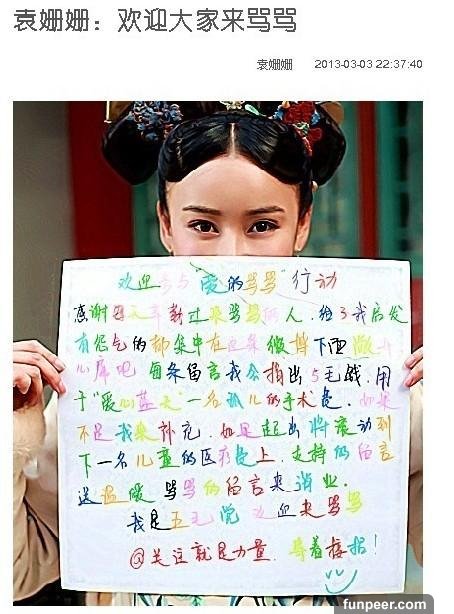 袁姗姗：欢迎大家来骂骂
袁姗姗 2013-03-03 22:37:40
欢迎与"爱的骂骂"行动
感谢每天辛勤过来骂骂的人.给了我启发
有怨气的都集中在这条微博下面
心库吧 每条留言我会捐出5毛钱.用
于"爱心蓝天"一名孤儿的手术费.如果
不足我来补充.如果超出将滚动到
下一名儿童的医疗费上.支持的留言
送温暖 骂骂的留言来消业.
我是五毛党 欢迎来骂骂
@关注就是力量 等着接招!
funpeer.com